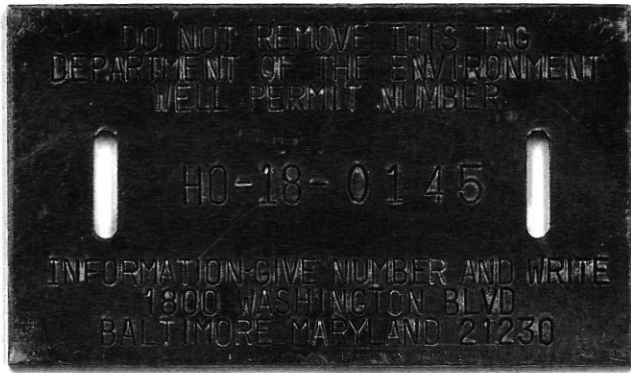 DO NOT REMOVE THIS TAG
DEPARTMENT OF THE ENVIRONMENT
WELL PERMIT NUMBER
HO-18-0145
INFORMATION-GIVE NUMBER AND WRITE
1800 WASHINGTON BLVD
BALTIMORE MARYLAND 21230